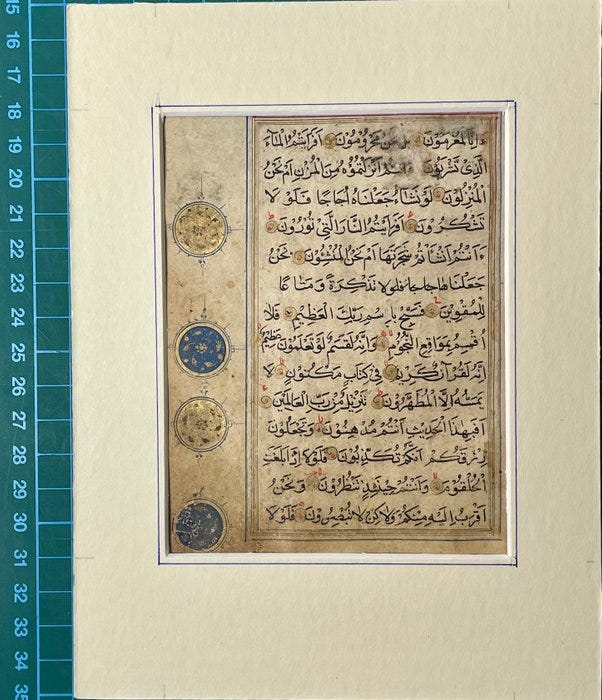 إنا لمغرمون بل نحن محرومون افرايتم الماء
الذي تشربون ءانتم انزلتموه من المزن ام نحن
المنزلون لو نشاء جعلناه اجاجا فلو لا
تشكرون افرايتم النار التي تورون
ءانتم انشاتم شجرتها ام نحن المنشئون نحن
جعلناها فلولا تذكرة ومتاعا
للمقوين فسبح باسم ربك العظيم فلا
اقسم بمواقع النجوم وانه لقسم لو تعلمون عظيم
انه لقرآن كريم في كتاب مكنون لا
يمسه الا المطهرون تنزيل من رب العالمين
افبهذا الحديث انتم مدهنون وتجعلون
رزقكم انكم تكذبون فلولا اذا بلغت
الحلقوم وانتم حينئذ تنظرون ونحن
اقرب اليه منكم ولاكن لا تبصرون فلولا
15
16
17
18
19
20
21
22
23
24
25
26
27
28
29
30
31
32
33
34
35